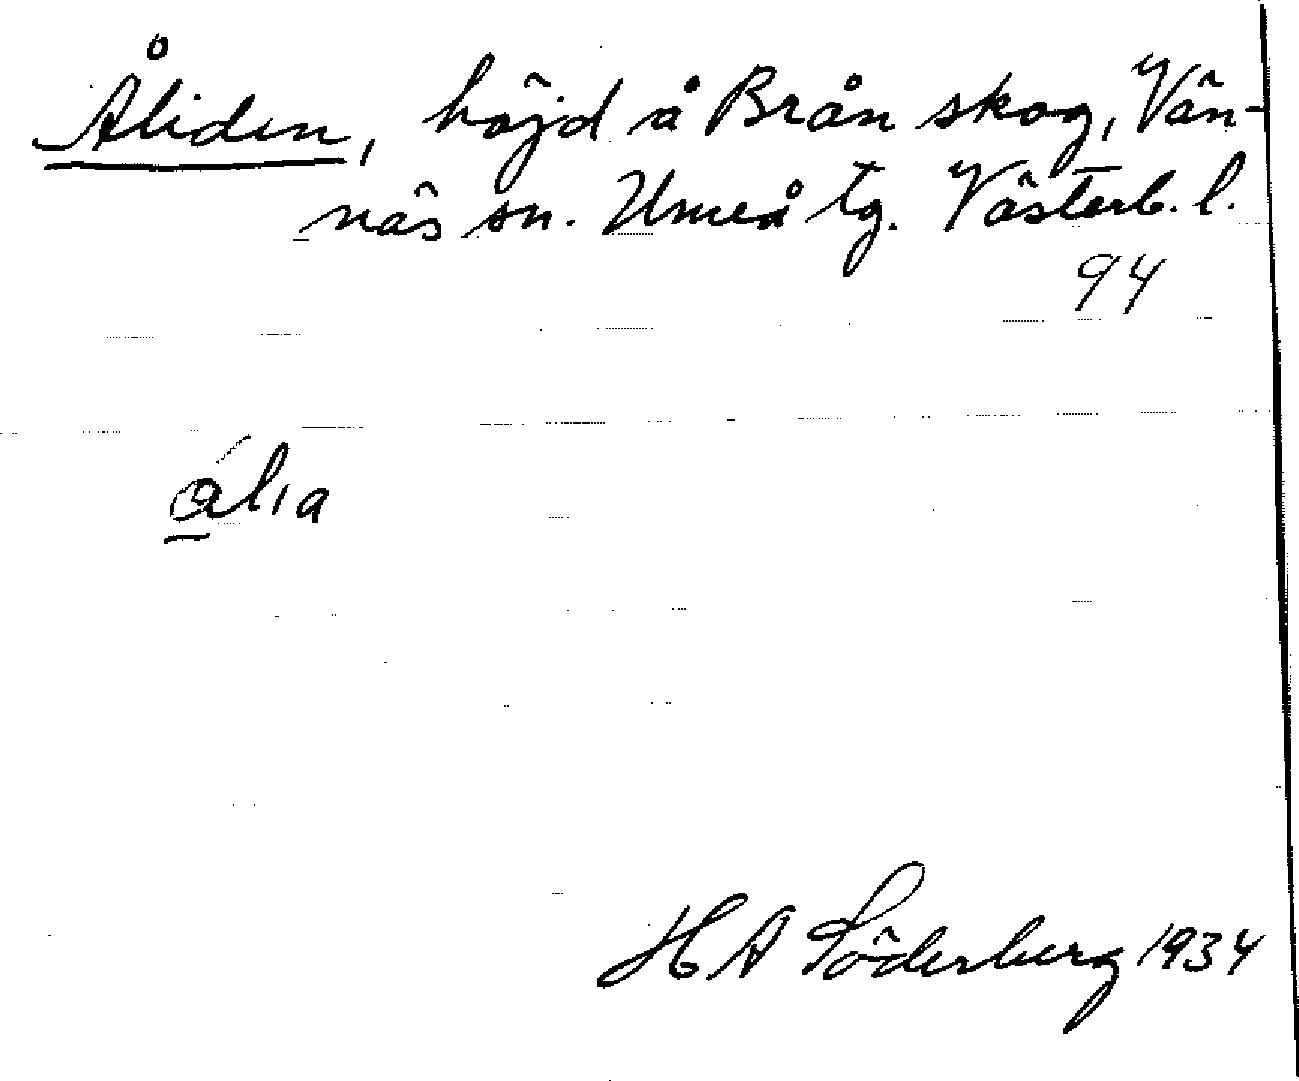 Åliden, höjd å Brån skog, Vän-
näs sn. Umeå tg. Västerb. l.
94
ålıa
H A Söderberg 1934